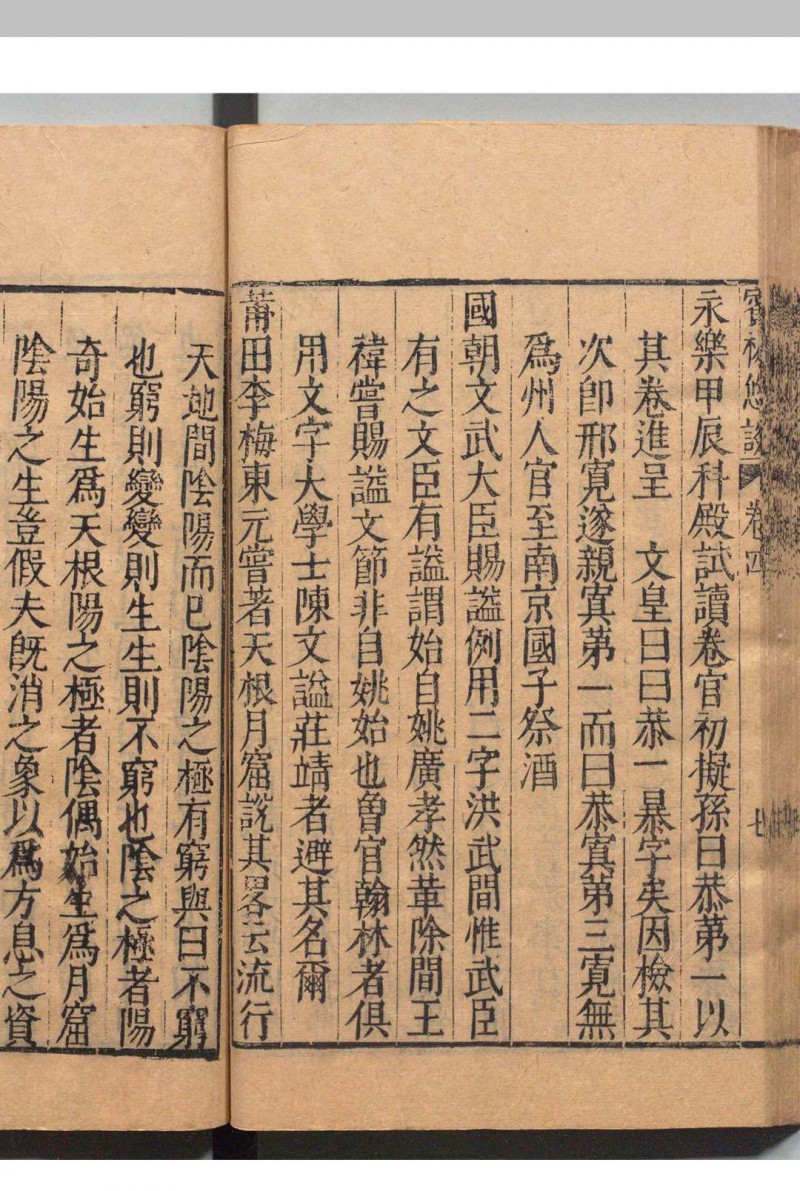 賓松悠談 卷四 七
永樂甲辰科殿試讀卷官初擬孫曰恭第一以
其卷進呈 文皇曰曰恭一暴字矣因檢其
次卽邢寬遂親寘第一而曰恭寘第三寬無
爲州人官至南京國子祭酒
國朝文武大臣賜謚例用二字洪武間惟武臣
有之文臣有謚謂始自姚廣孝然革除間王
禕嘗賜謚文節非自姚始也曽官翰林者俱
用文字大學士陳文謚莊靖者避其名爾
莆田李梅東元嘗著天根月窟說其畧云流行
天地間陰陽而已陰陽之極有窮與曰不窮
也窮則變變則生生則不窮也陰之極者陽
奇始生爲天根陽之極者陰偶始生爲月窟
陰陽之生豈假夫旣消之象以爲方息之資